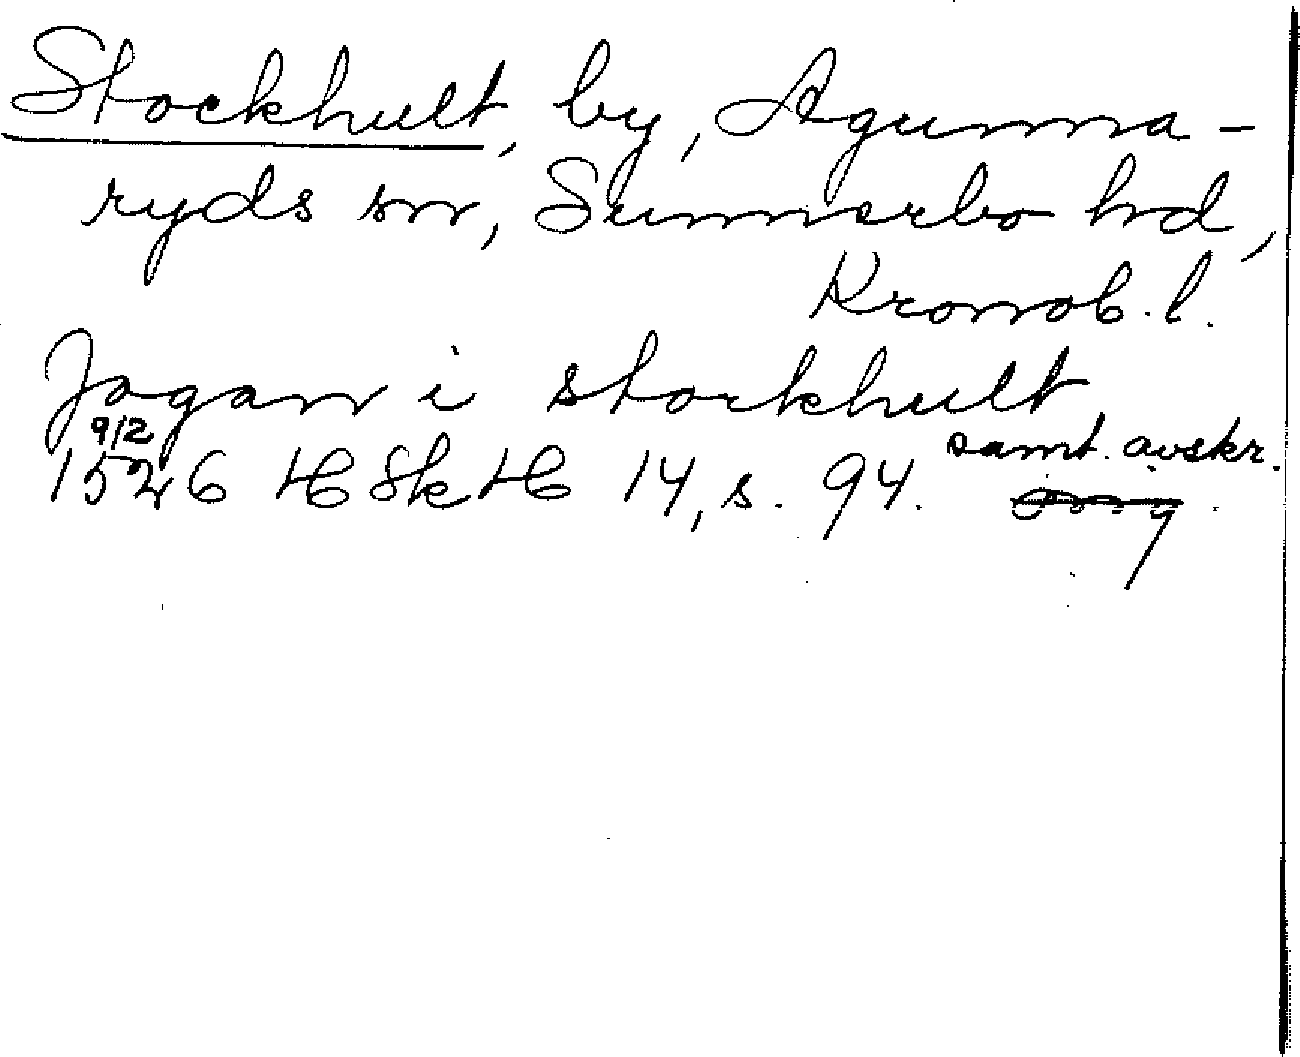 Stockhult, by, Agunna-
ryds sn, Sunnerbo hd,
Kronob. l.
Jogan i stockhult,
9/2
1526 HSkH 14, s. 94. samt. avskr.